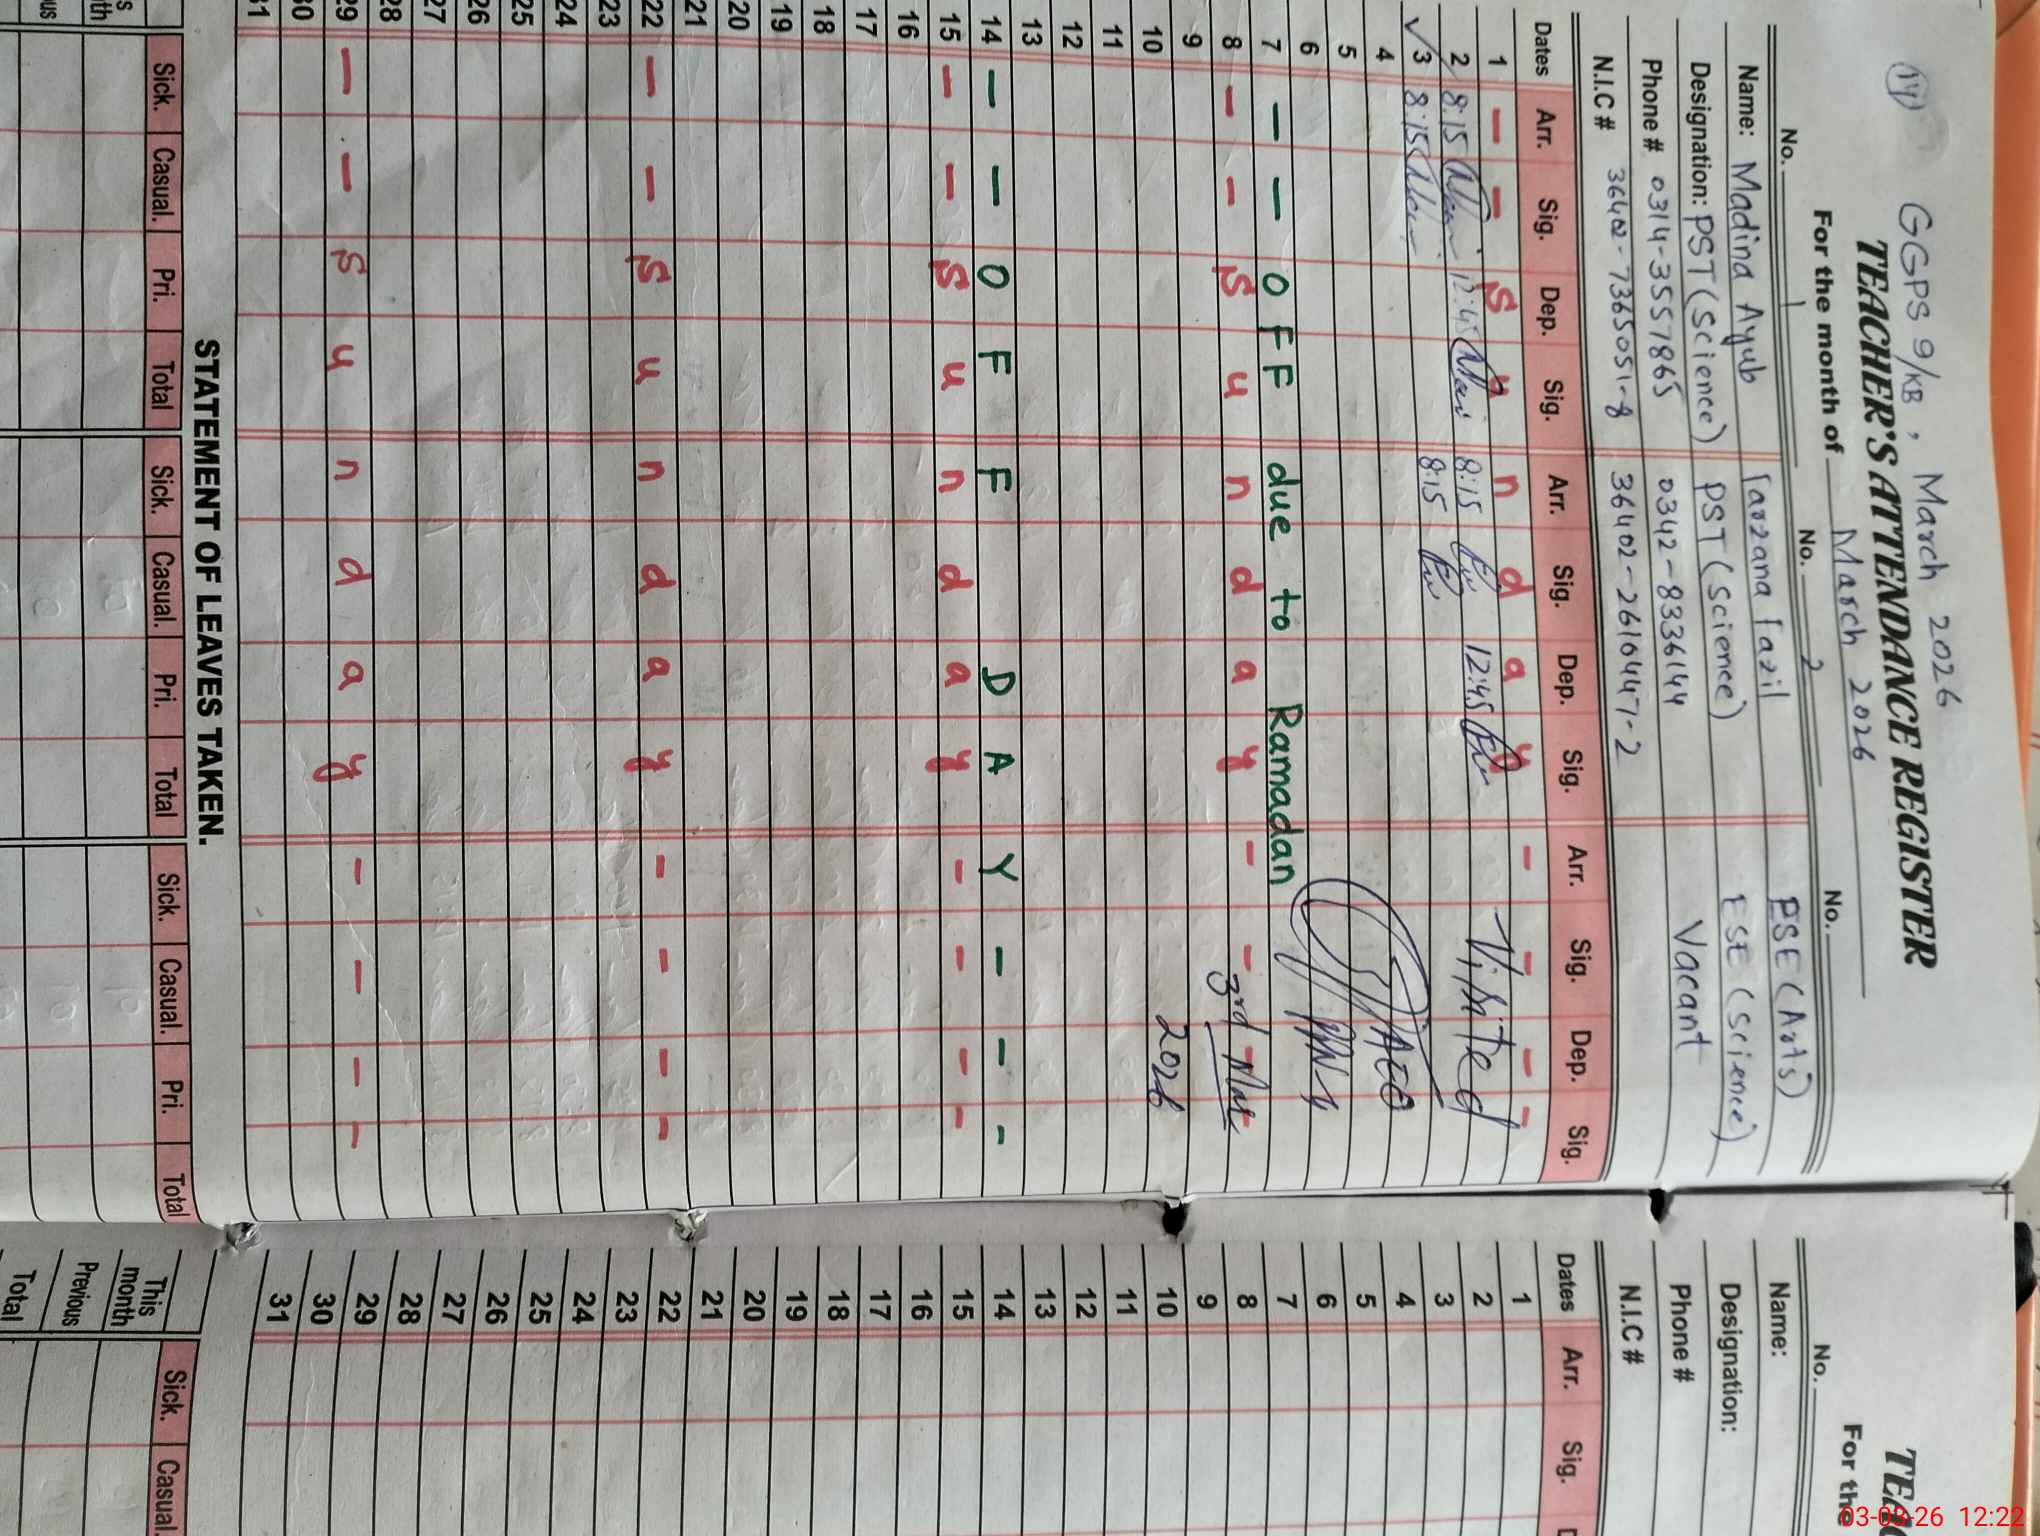 14 GGPS 9/KB, March 2026
TEACHER'S ATTENDANCE REGISTER
For the month of March 2026
No. 1 No. 2 No.
Name: Madina Ayub Farzana Fazil PSE (Arts)
Designation: PST (Science) PST (Science) ESE (Science)
Phone # 0314-3557865 0342-8336144 Vacant
N.I.C # 36402-7365051-8 36402-2610447-2
Dates Arr. Sig. Dep. Sig. Arr. Sig. Dep. Sig. Arr. Sig. Dep. Sig.
1 - - S u n d a y - - - -
2 8:15 12:45 8:15 12:45 Visited
3 8:15 8:15
4 AEO
5
6
7 - - OFF due to Ramadan
8 - - S u n d a y - - 3rd Mar
9
10 2026
11
12
13
14 - - O F F D A Y - - -
15 - - S u n d a y - - - -
16
17
18
19
20
21
22 - - S u n d a y - - - -
23
24
25
26
27
28
29 - - S u n d a y - - - -
30
31
STATEMENT OF LEAVES TAKEN.
Sick. Casual. Pri. Total Sick. Casual. Pri. Total Sick. Casual. Pri. Total
TEA
For the
No.
Name:
Designation:
Phone #
N.I.C #
Dates Arr. Sig.
1
2
3
4
5
6
7
8
9
10
11
12
13
14
15
16
17
18
19
20
21
22
23
24
25
26
27
28
29
30
31
Sick. Casual.
This month
Previous
Total
03-03-26 12:22